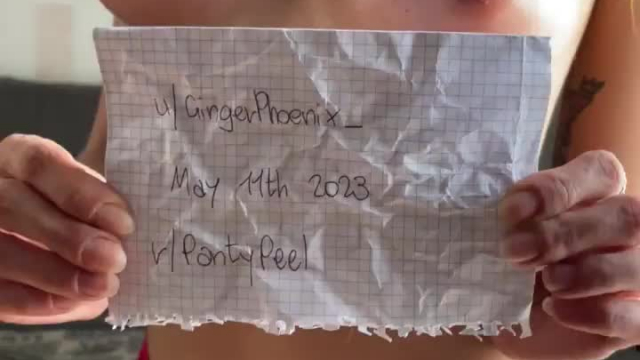 u/GingerPhoenix_
May 11th 2023
r/PantyPeel